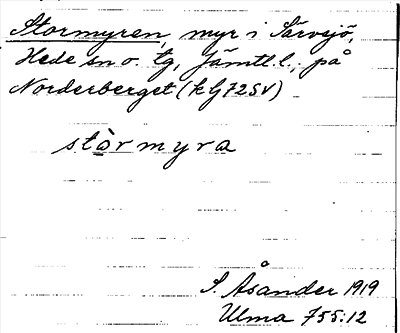 Stormyren, myr i Särvsjö,
Hede sn o. tg, Jämtl.l.; på
Norderberget (k lj 72SV)
stòrmyra
S. Åsander 1919
Ulma 755:12